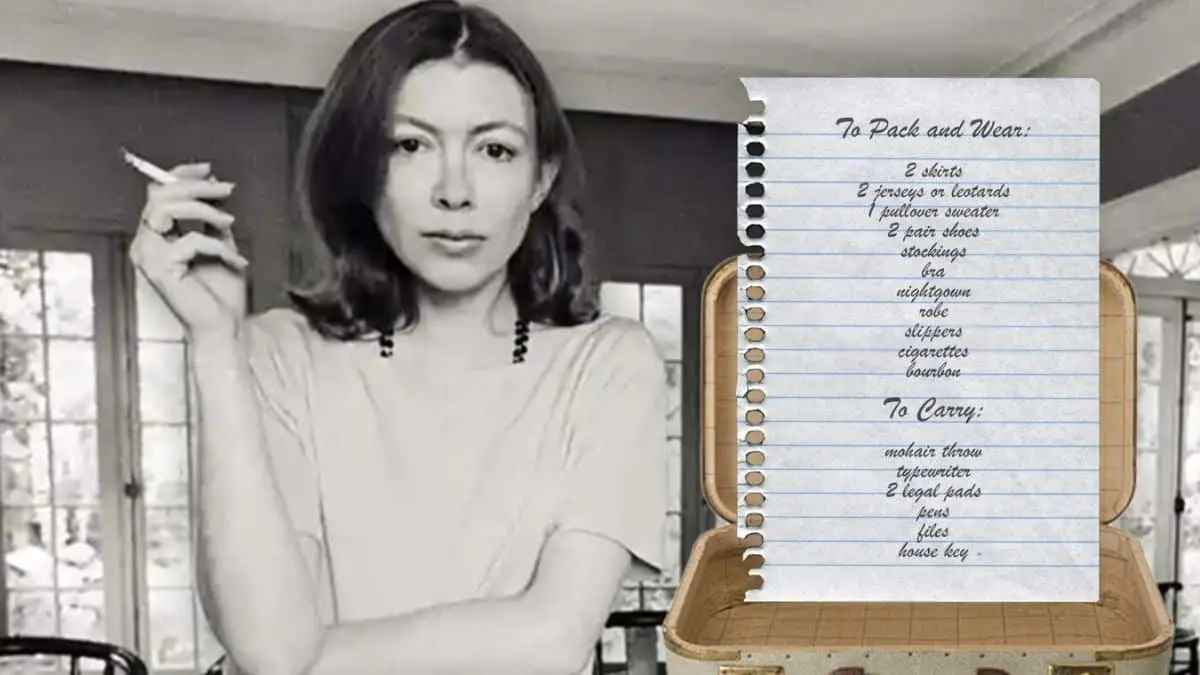 To Pack and Wear:
2 skirts
2 jerseys or leotards
1 pullover sweater
2 pair shoes
stockings
bra
nightgown
robe
slippers
cigarettes
bourbon
To Carry:
mohair throw
typewriter
2 legal pads
pens
files
house key